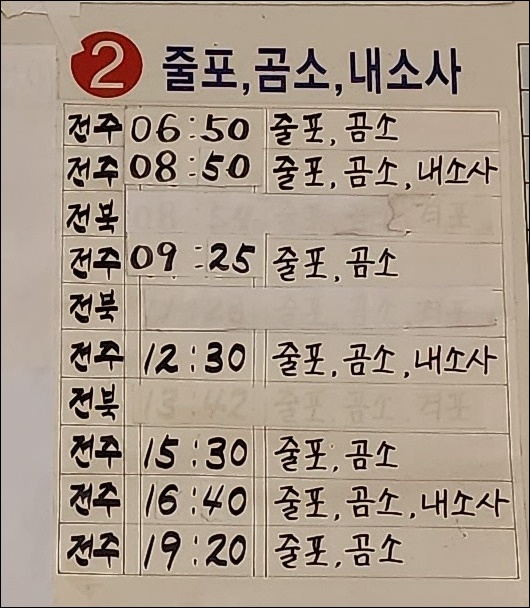 2 줄포,곰소,내소사
전주 06:50 줄포, 곰소
전주 08:50 줄포, 곰소, 내소사
전북
전주 09:25 줄포, 곰소
전북
전주 12:30 줄포, 곰소, 내소사
전북 13:42 줄포, 곰소, 격포
전주 15:30 줄포, 곰소
전주 16:40 줄포, 곰소, 내소사
전주 19:20 줄포, 곰소